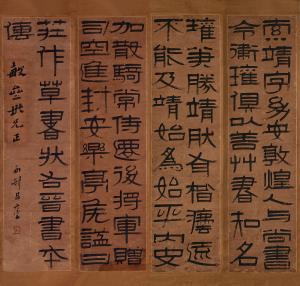 索靖字幼安敦煌人与尚書
令衛瓘俱以善艸書知名
瓘筆勝靖肰有楷法遠
不能及靖始為始平内史
加散騎常侍遷後將軍贈
司空進封安樂亭矦謚曰
莊作草書狀右晉書本
傳
兄正